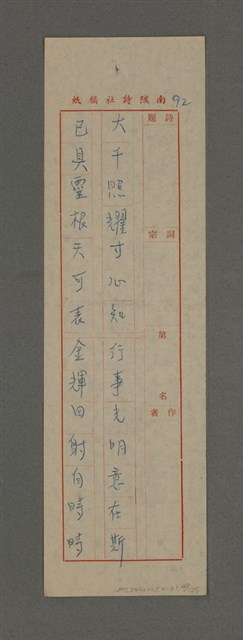 南陔詩社稿紙
92
詩題
詞宗
第 名
作者
大千照耀寸心知行事光明意在斯
已具靈根天可表金輝回射向時時